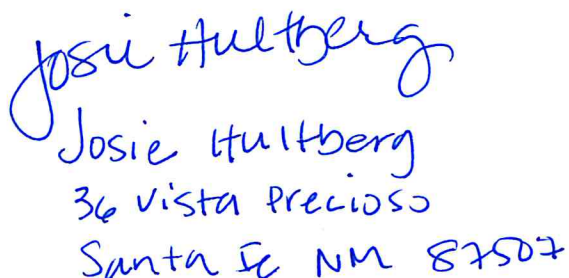 Josie Hultberg
Josie Hultberg
36 Vista Precioso
Santa Fe NM 87507